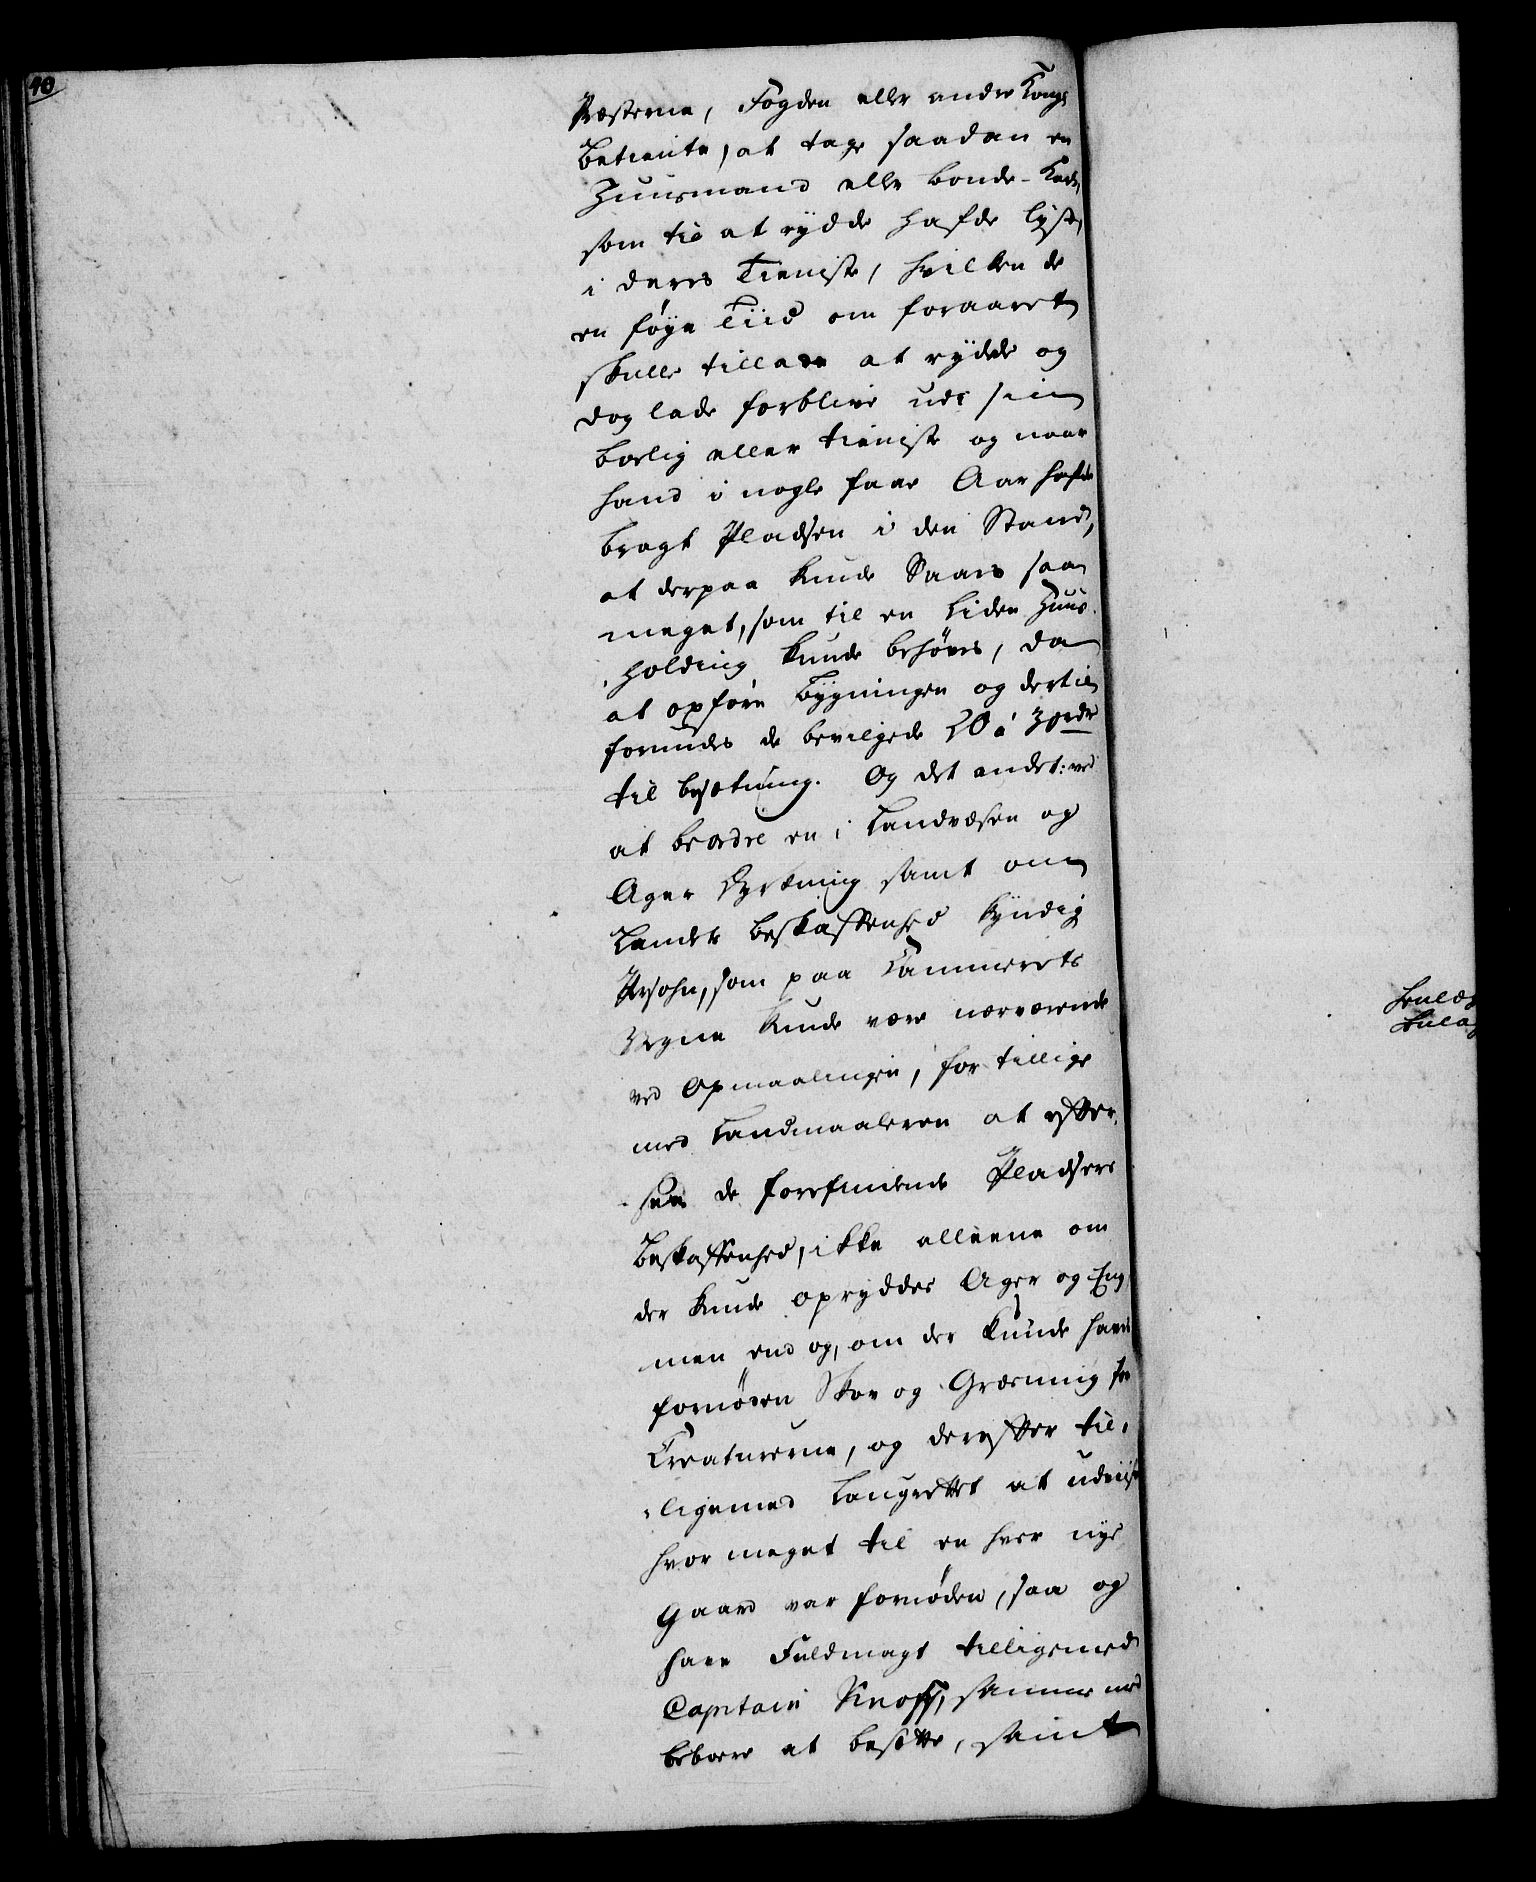 40
Præsterne, Fogden eller andre Kongl
Betiente, at tage saadan en
Huusmand eller bonde-Karl,
som til at rydde hafde lyst,
i deres Tieniste, hvilken de
en føye Tiid om foraaret
skulle tillade at rydde og
dog lade forblive udi sin
bolig eller tieniste og naar
hand i nogle faae Aar hafde
bragt Pladsen i den Stand,
at derpaa kunde Saaes saa
meget, som til en liden Huus-
holding kunde behøves, da
at opføre bygningen og dertil
forundes de bevilgede 20 á 30 rdr
til besætning. Og det andet: ved
at beordre en i Landvæsen og
Ager Dyrkning samt om
Landets beskaffenhed kyndig
Persohn, som paa Cammerets
Vegne kunde være nærværende
ved Opmaalingen, for tillige
med Landmaaleren at efter-
see de forefindende Pladsers
Beskaffenhed, ikke alleene om
der kunde opryddes Ager og Eng
men end og, om der kunde haves
fornøden Skov og Græsning for
Creaturerne, og derefter til-
ligemed Laugrettet at udviise
hvor meget til en hver nye
Gaard var fornøden, saa og
have Fuldmagt tilligemed
Captain Knoff, samme med
beboere at besætte, samt